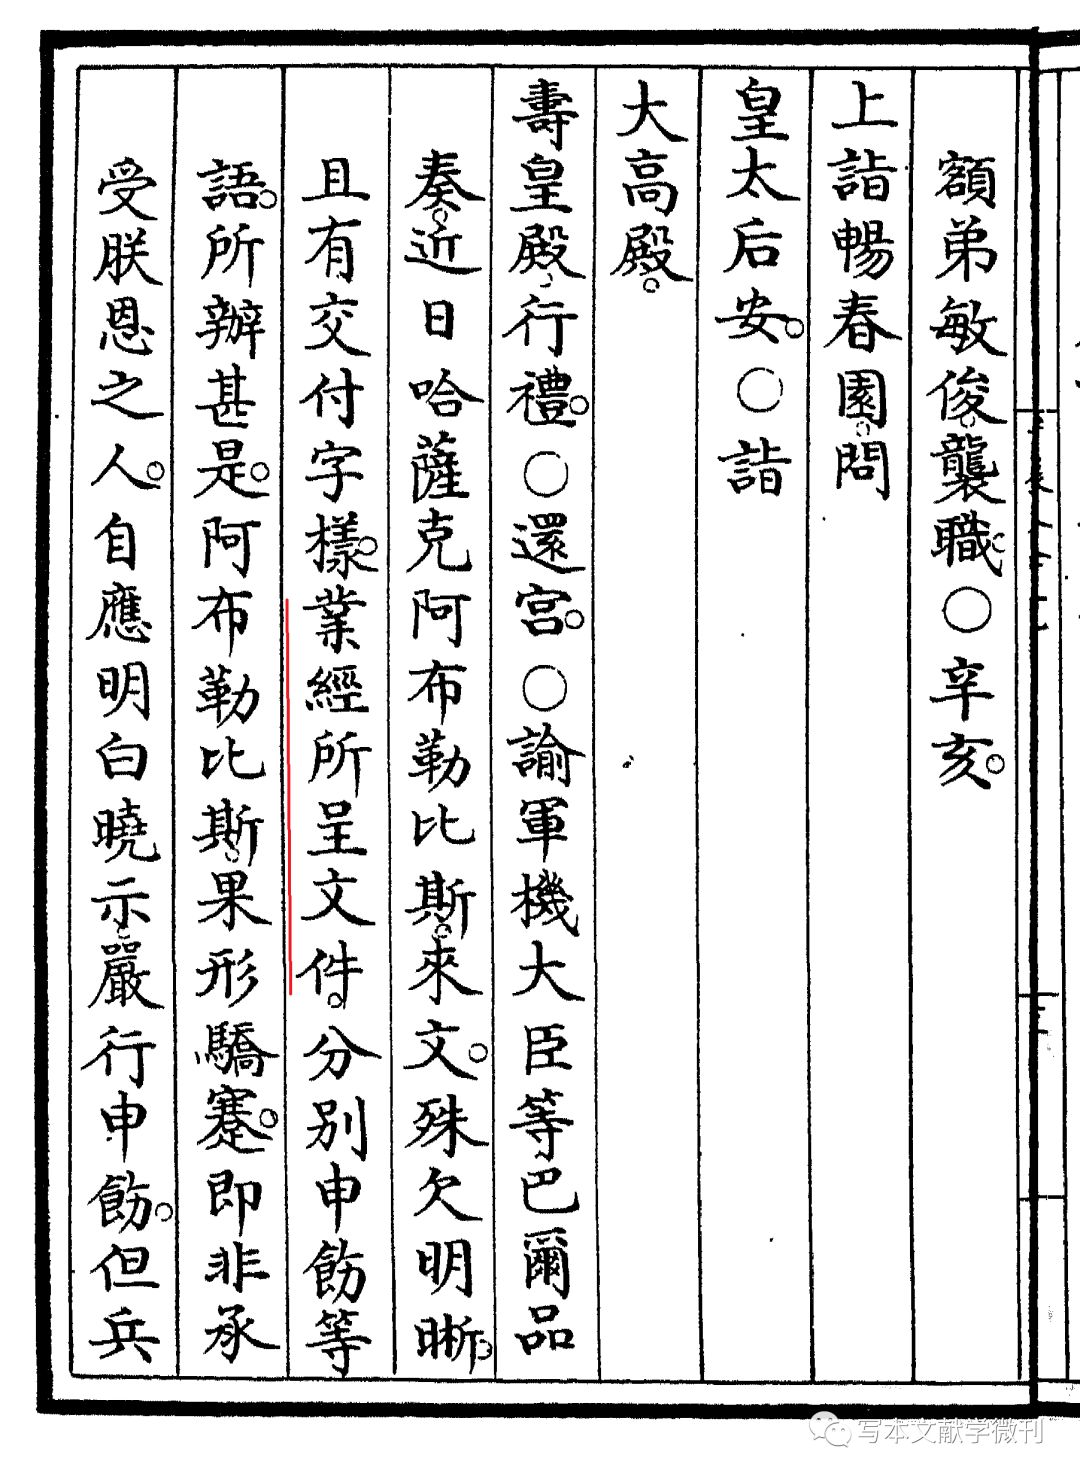 額弟敏俊。襲職。○辛亥。
上詣暢春園。問
皇太后安。○詣
大高殿。
壽皇殿。行禮。○還宮。○諭軍機大臣等巴爾品
奏。近日哈薩克阿布勒比斯。來文。殊欠明晰。
且有交付字樣。業經所呈文件。分別申飭等
語。所辦甚是。阿布勒比斯。果形驕蹇。即非承
受朕恩之人。自應明白曉示。嚴行申飭。但兵
写本文献学微刊